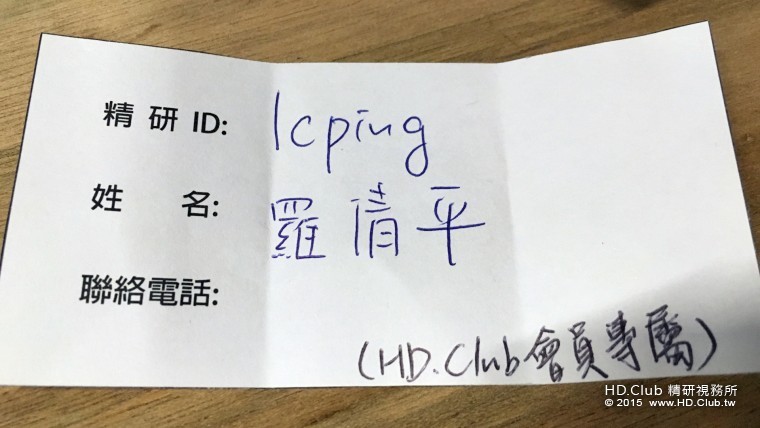 精研 ID: lcping
姓 名: 羅倩平
聯絡電話:
(HD.Club會員專屬)
HD.Club 精研視務所
© 2015 www.HD.Club.tw